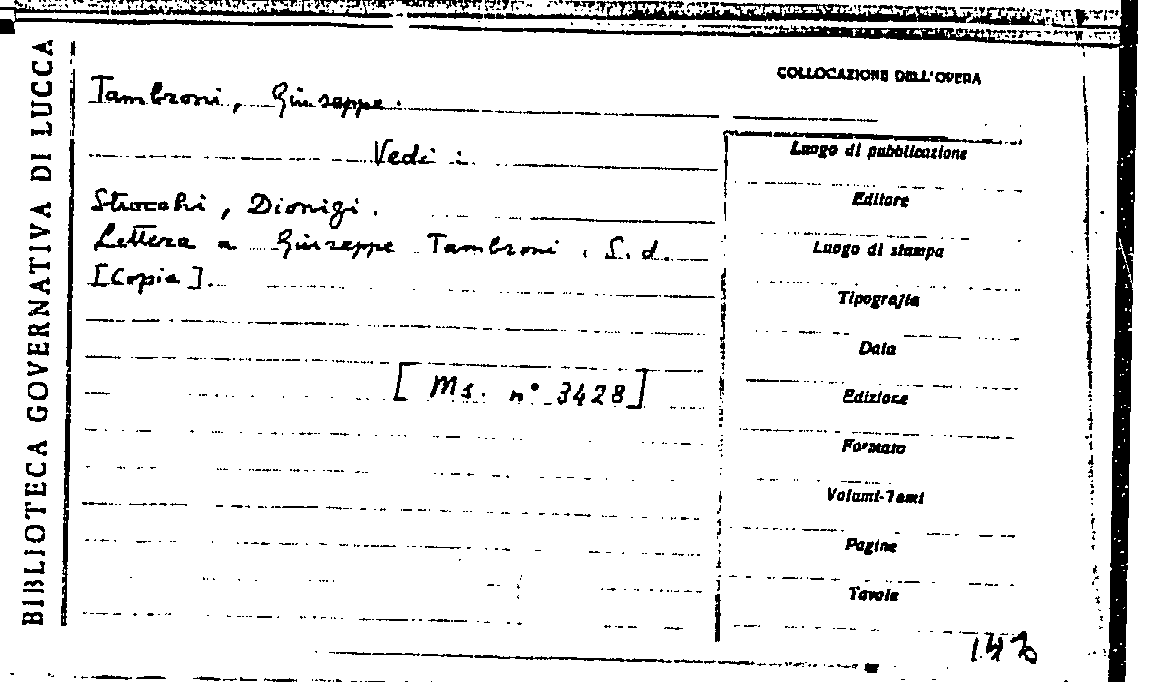 BIBLIOTECA GOVERNATIVA DI LUCCA
COLLOCAZIONE DELL'OPERA
Tambroni, Giuseppe.
Vedi:
Strocchi, Dionigi.
Lettera a Giuseppe Tambroni. S.d.
[Copia].
[Ms. n° 3428]
Luogo di pubblicazione
Editore
Luogo di stampa
Tipografia
Data
Edizione
Formato
Volumi-Tomi
Pagine
Tavole